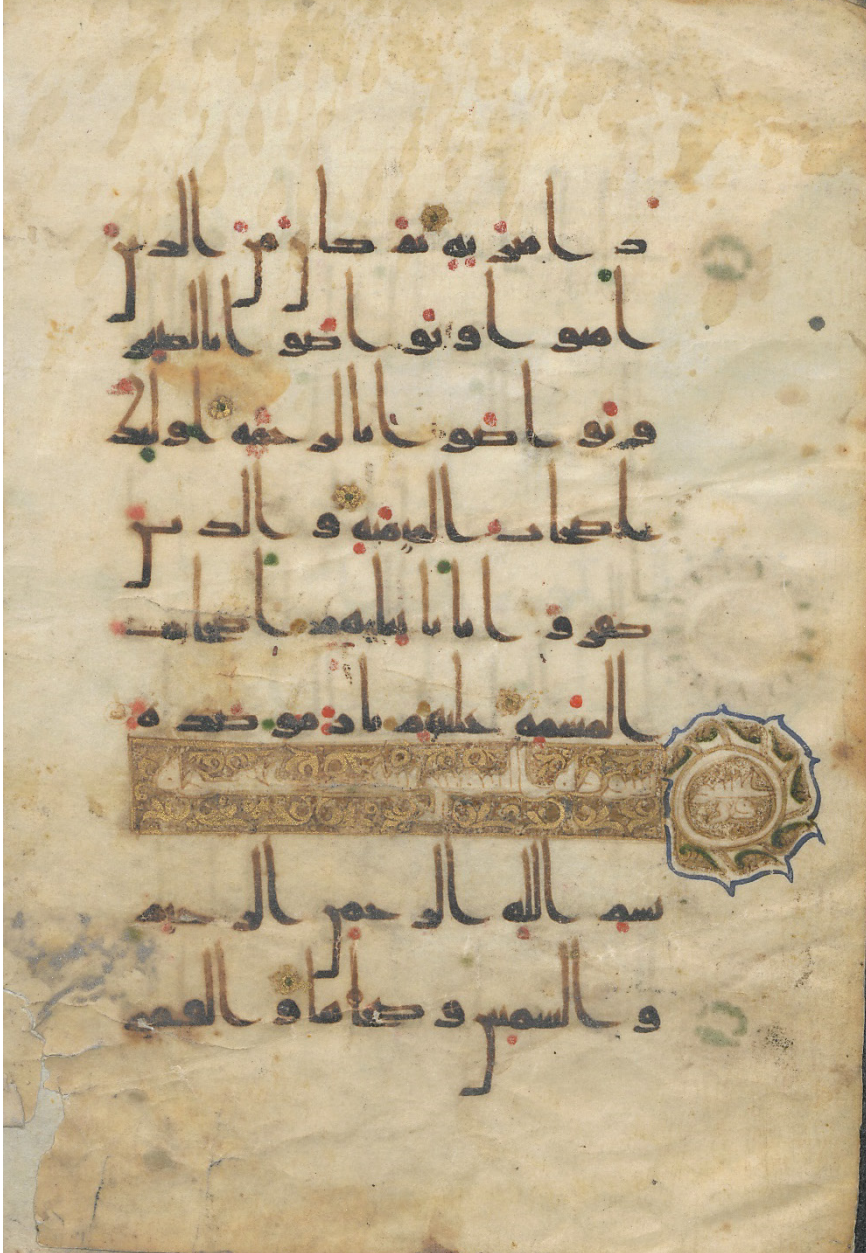 ذا متربة ثم كان من الذين
امنوا وتواصوا بالصبر
وتواصوا بالمرحمة اولئك
اصحاب الميمنة والذين
كفروا باياتنا هم اصحاب
المشمة عليهم نار موصدة
بسم الله الرحمن الرحيم
والشمس وضحاها والقمر